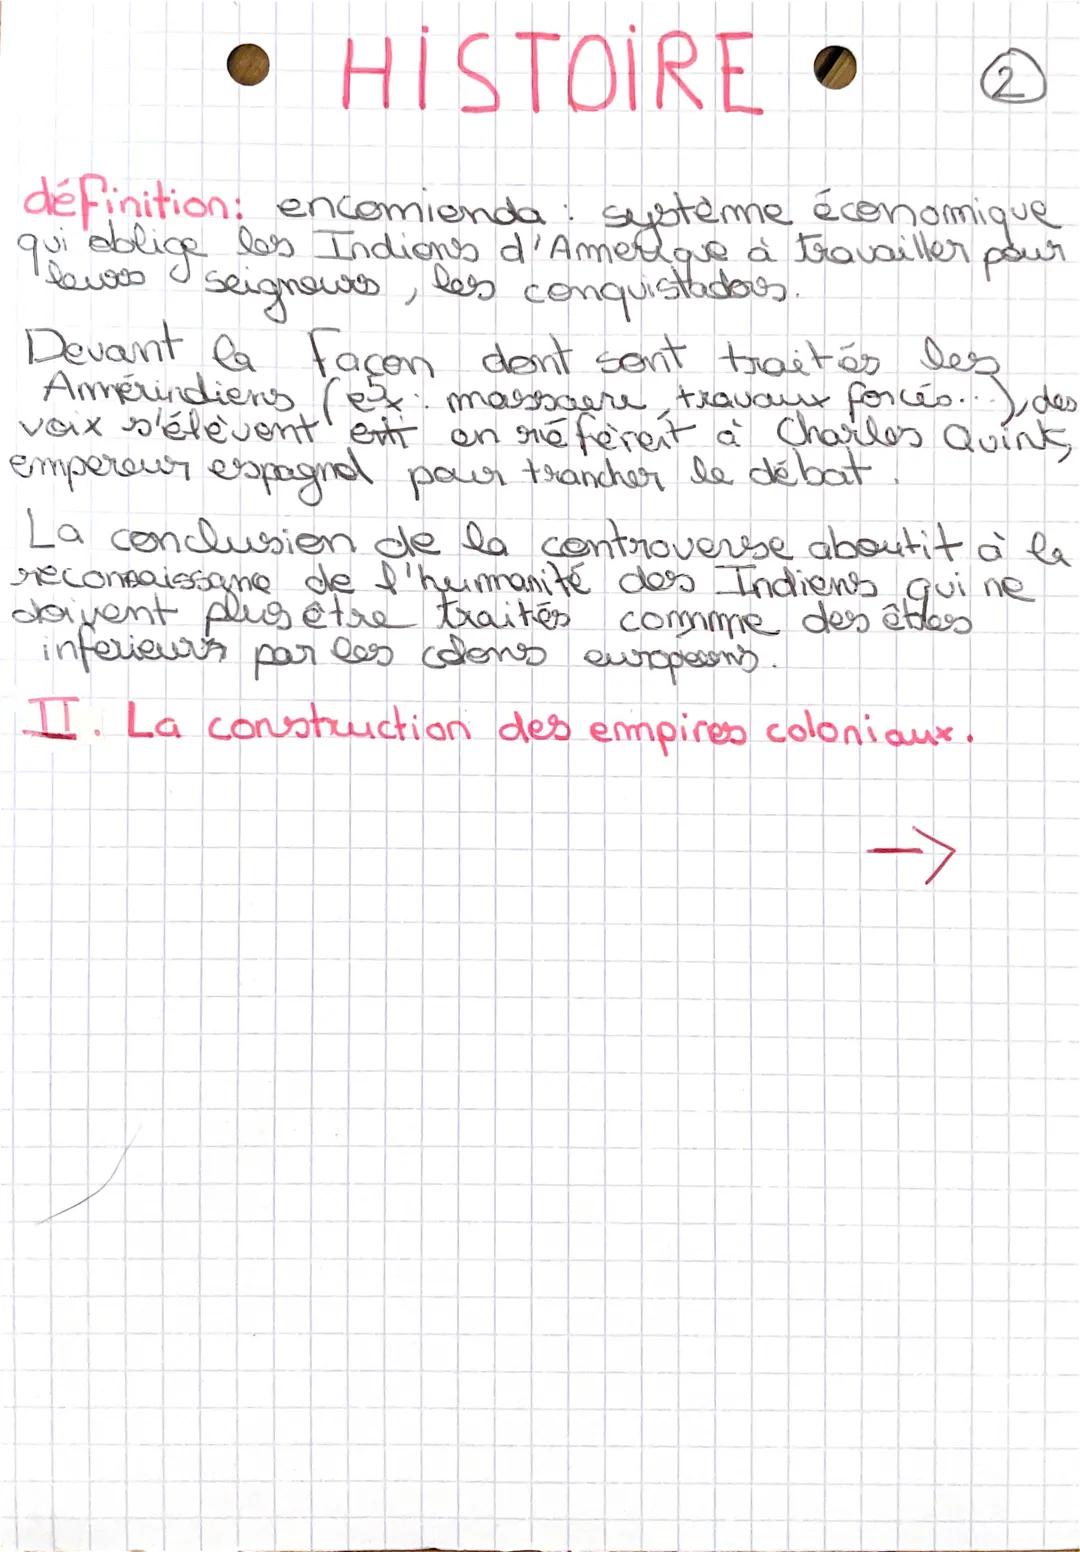 HiSTOiRE
2
définition: encomienda : système économique
qui oblige les Indiens d'Amerique à travailler pour
leurs seigneurs, les conquistadors.
Devant la façon dont sont traités les
Amérindiens (ex: massacre, travaux forcés...), des
voix s'élèvent en réfèrent à Charles Quint,
empereur espagnol pour trancher le débat.
La conclusion de la controverse aboutit à la
reconnaissance de l'humanité des Indiens qui ne
doivent plus être traités comme des êtres
inferieurs par les colons européens.
II. La construction des empires coloniaux.
→